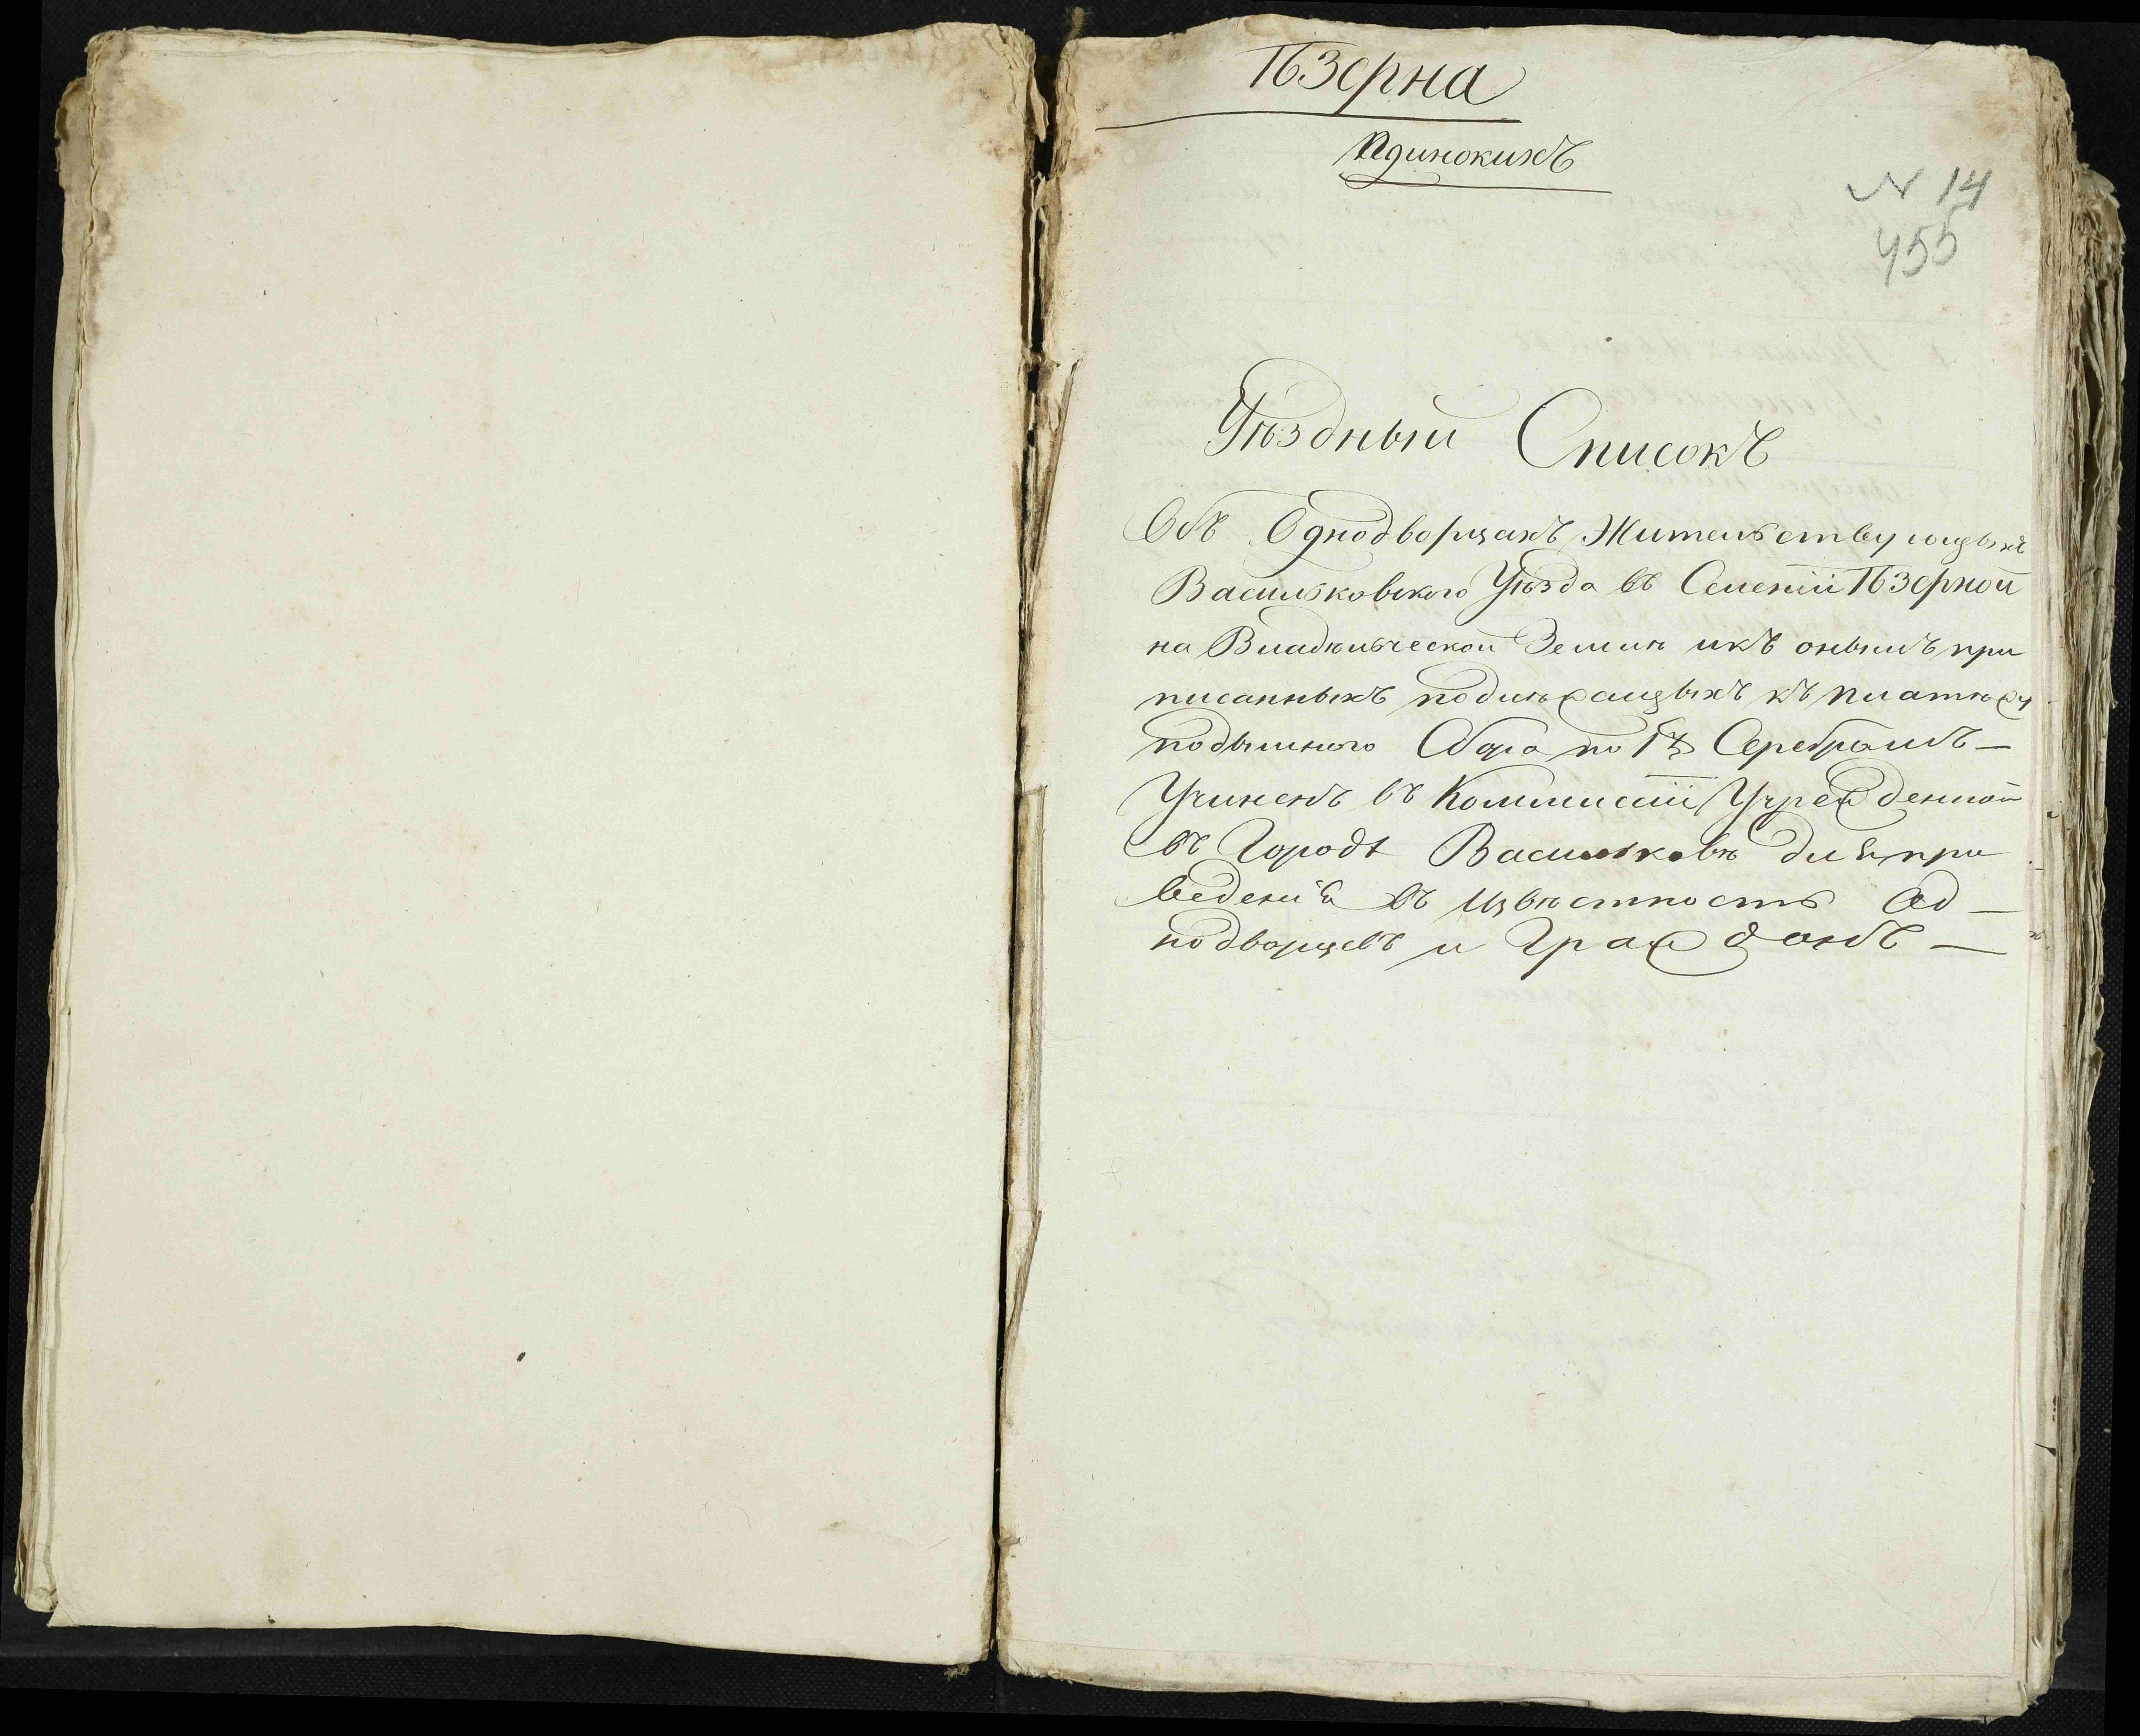 Ѣзерна
Одинокихъ
№ 14
455
Уѣздный Списокъ
Объ Однодворцахъ Жительствующыхъ
Васильковского Уѣзда въ Селеніи Ѣзерной
на Владѣльческой Землѣ икъ онымъ при
писанныхъ подлежащыхъ къ платежу
подымного Сбора по 1 Серебромъ —
Учиненъ въ Коммисіи Учрежденной
въ Городѣ Васильковѣ для при
веденія въ Извѣстность Од —
нодворцевъ и Гражданъ —